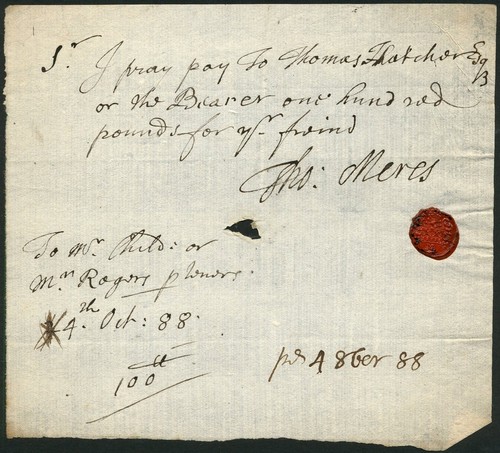 Sr. I pray pay to Thomas Thatcher Esqr
or the Bearer one hundred
pounds for yr. freind
Tho: Meres
To Mr. Child: or
Mr. Rogers
4th. Oct: 88.
100ll
pd 4 8ber 88